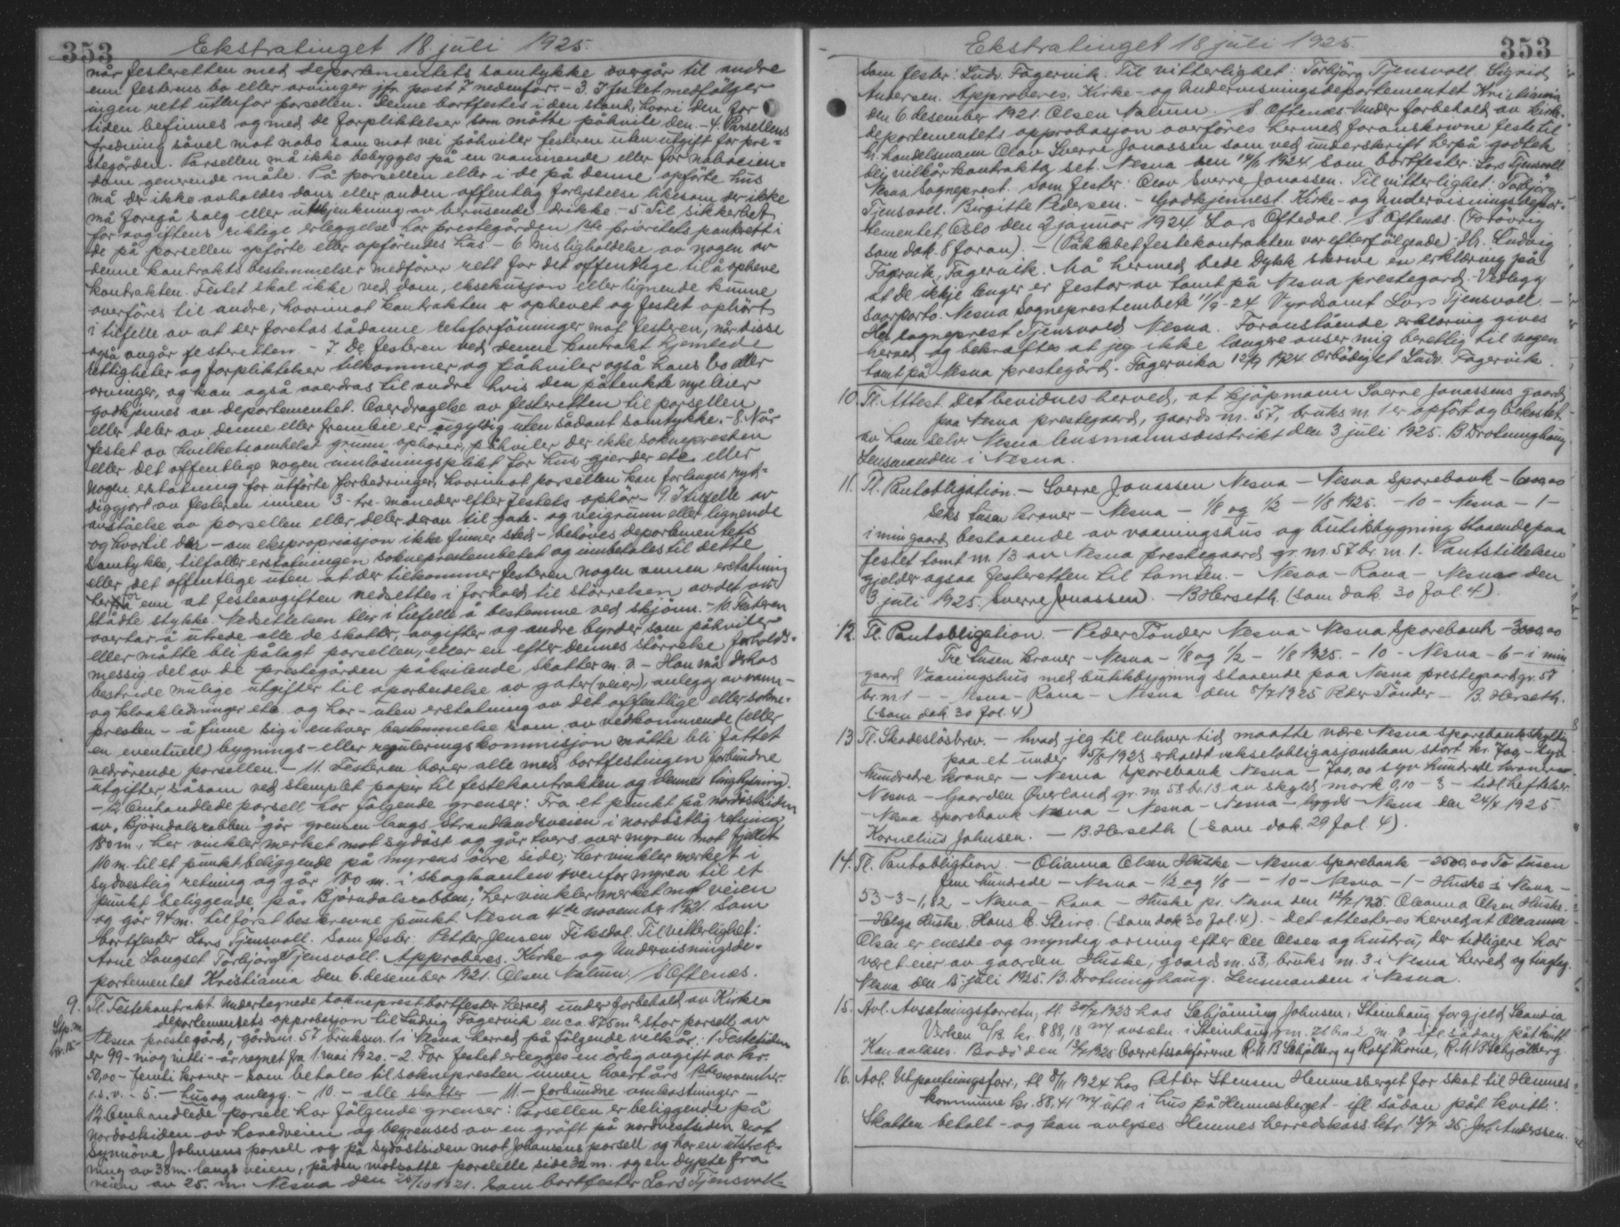 353
Ekstratinget 18 juli 1925.
når festeretten med departementets samtykke overgår til andre
enn festerens bo eller arvinger jfr. post 7 nedenfor. - 3. I festet medfølger
ingen rett utenfor parsellen. Denne bortfestes i den stand, hvori den for
tiden befinnes og med de forpliktelser som måtte påhvile den. - 4. Parsellens
fredning såvel mot nabo som mot vei påhviler festeren uten utgift for pre=
stegården. Parsellen må ikke bebygges på en vansirende eller for naboeien=
dom generende måte. På parsellen eller i de på denne opførte hus
må der ikke avholdes dans eller anden offentlig forlystelse likesom der ikke
må foregå salg eller utskjenkning av berusende drikke - 5. Til sikkerhet
for avgiftens riktige erleggelse har prestegården 1ste prioritets panterett i
de på parsellen opførte eller opførendes hus - 6. misligholdelse av nogen av
denne kontrakts bestemmelser medfører rett for det offentlige til å opheve
kontrakten. Festet skal ikke ved dom, eksekusjon eller lignende kunne
overføres til andre, hvorimot kontrakten er ophevet og festet ophørt
i tilfelle av at der foretas sådanne retsforføininger mot festeren, når disse
også angår festeretten - 7. De festeren ved denne kontrakt hjemlede
rettigheter og forpliktelser tilkommer og påhviler også hans bo eller
arvinger, og kan også overdras til andre hvis den påtenkte nye leier
godkjennes av departementet. Overdragelse av festeretten til parsellen
eller deler av denne eller fremleie er ugyldig uten sådant samtykke. - 8. Når
festet av hvilketsomhelst grunn ophører, påhviler der ikke soknepresten
eller det offentlige nogen innløsningsplikt for hus gjerder etc. eller
nogen erstatning for utførte forbedringer, hvorimot parsellen kan forlanges ryd=
diggjort av festeren innen 3 - tre - måneder efter festets ophør - 9. I tilfelle av
avståelse av parsellen eller deler derav til gate- og veigrunn eller lignende
og hvortil der - om ekspropriasjon ikke finner sted - behøves departementets
samtykke, tilfaller erstatningen sokneprestembetet og innbetales til dette
eller det offentlige uten at der tilkommer festeren nogen annen erstatning
herfor enn at festeavgiften nedsettes i forhold til størrelsen av det av=
ståtte stykke. Nedsettelsen blir i tilfelle å bestemme ved skjønn. - 10. Festeren
overtar å utrede alle de skatter, avgifter og andre byrder som påhviler
eller måtte bli pålagt parsellen, eller en efter dennes størrelse forholds=
messig del av de prestegården påhvilende skatter m. v. - Han må derhos
bestride mulige utgifter til oparbeidelse av gater (veier), anlegg av vann-
og kloakledninger etc og har - uten erstatning av det offentlige eller sokne=
presten - å finne sig i enhver bestemmelse som av vedkommende (eller
en eventuell) bygnings- eller reguleringskommisjon måtte bli fattet
vedrørende parsellen. - 11. Festeren bærer alle med bortfestingen forbundne
utgifter såsom ved stemplet papir til festekontrakten og dennes tinglysning.
- 12. Omhandlede parsell har følgende grenser: Fra et punkt på nordøstsiden
av "Bjørndalsrabben" går grensen langs Strandlandsveien i nordøstlig retning
180 m., her vinkler merket mot sydøst og går tvers over myren mot fjellet
110 m. til et punkt beliggende på myrens øvre side, her vinkler merket i
sydvestlig retning og går 180 m. i skogkanten ovenfor myren til et
punkt beliggende på "Bjørndalsrabben", her vinkler merket mot veien
og går 94 m. til først beskrevne punkt Nesna 4de november 1921. Som
bortfester Lars Tjensvoll. Som fester: Petter Jensen Fiksdal. Til vitterlighet:
Arne Langset Torbjørg Tjensvoll. Approberes. Kirke- og undervisningsde=
partementet Kristiania den 6. desember 1921. Olsen Nalum. / S. Oftenes.
9. Tl. Festekontrakt. Undertegnede sokneprest bortfester herved under forbehold av Kirke=
departementets approbasjon til Ludvig Fagervik en ca. 875 m² stor parsell av
Nesna prestegård, gårdsnr. 57 bruksnr. 1 i Nesna herred på følgende vilkår: 1. Festetiden
er 99 - niog nitti - år regnet fra 1. mai 1920. - 2. For festet erlegges en årlig avgift av kr.
50,00 - femti kroner - som betales til soknepresten innen hvert års 1ste november.
o.s.v. - 5. - hus og anlegg. - 10. - alle skatter - 11 - forbundne omkostninger -
12. Omhandlede parsell har følgende grenser: Parsellen er beliggende på
nordøstsiden av hovedveien og begrenses av en grøft på nordvestsiden mot
Synnøve Johnsens parsell og på sydøstsiden mot Johansens parsell og har en utstrek=
ning av 38 m. langs veien, på den motsatte parallelle side 32 m. og en dypte fra
veien av 25. m. Nesna den 20/10 1921. Som bortfester Lars Tjensvoll
353
Ekstratinget 18 juli 1925.
Som fester: Ludv. Fagervik. Til vitterlighet: Torbjørg Tjensvoll. Sigrid
Andersen. Approberes. Kirke- og undervisningsdepartementet Kristiania
den 6 desember 1921. Olsen Nalum. / S. Oftenes. Under forbehold av kirke=
departementets approbasjon overføres hermed foranskrevne feste til
hr. handelsmann Olav Sverre Jonassen som ved underskrift herpå godtok
de vilkår kontrakten set. Nesna den 14/6 1924. Som bortfester: Lars Tjensvoll
Nesna Sogneprest. Som fester: Olav Sverre Jonassen. Til vitterlighet: Torbjørg
Tjensvoll. Birgitte Pedersen. - Godkjennest. Kirke- og undervisningsdepar=
tementet, Oslo den 2 januar 1924 Lars Oftedal. / S. Oftenes. (Forøvrig
som dok. 8 foran). - (Vedhæftet festekontrakten var efterfølgende): Hr. Ludvig
Fagervik, Fagervik. Må hermed bede Dykk skrive en erklæring på
at De ikkje lenger er festar av tomt på Nesna prestegard. Vedlagt
svarporto. Nesna Sogneprestembete 11/9-24 Vyrdsamt Lars Tjensvoll. -
Hr. sogneprest Tjensvold Nesna. Foranstående erklæring gives
herved og bekræftes at jeg ikke længere anser mig berettig til nogen
tomt på Nesna prestegård. Fagervika 12/9 1924 Ærbødigst Ludv. Fagervik.
10. Tl. Attest. Det bevidnes herved, at kjøpmann Sverre Jonassens gaard
paa Nesna prestegaard, gaards nr. 57, bruks nr. 1 er opført og bekostet
av ham selv. Nesna lensmannsdistrikt den 3 juli 1925. B Drotninghaug
Lensmanden i Nesna.
11. Tl. Pantobligation. - Sverre Jonassen Nesna - Nesna Sparebank - 6000,00
Seks tusen kroner - Nesna - 1/8 og 1/2 - 1/8 1925. - 10 - Nesna - 1 -
i min gaard bestaaende av vaaningshus og butikbygning staaende paa
festet tomt nr. 13 av Nesna prestegaard gr. nr. 57 br. nr. 1. Pantstillelsen
gjelder ogsaa festeretten til tomten. - Nesna - Rana - Nesna den
3 juli 1925. Sverre Jonassen). - B Herseth. (som dok 30 fol. 4).
12. Tl. Pantobligation - Peder Tønder Nesna - Nesna Sparebank - 3000,00
Tre tusen kroner - Nesna - 1/8 og 1/2 - 1/8 1925. - 10 - Nesna - 6 - i min
gaard Vaaningshus med butikbygning staaende paa Nesna prestegaard gr. 57
br. nr 1 - - Nesna - Rana - Nesna - den 5/7 1925 Peder Tønder - B. Herseth.
(som dok 30 fol. 4)
13 Tl. Skadesløsbrev. - hvad jeg til enhver tid maatte være Nesna sparebank skyldig
paa et under 15/5 1923 erholdt vekselobligasjonslaan stort kr. 700 - Syv
hundrede kroner - Nesna Sparebank Nesna - 700,00 syv hundrede kroner -
Nesna - Gaarden Øverland gr. nr. 58 br. 13 av skyld mark 0,10 - 3 - tidl. heftelser
- Nesna sparebank Nesna - Nesna - Nesna - bygds - Nesna den 24/4 1925
Kornelius Johnsen. - B. Herseth (som dok. 29 fol. 4).
14. Tl. Pantobligtion - Olianna Olsen Huske - Nesna Sparebank - 2500,00 To tusen
fem hundrede - Nesna - 1/2 og 1/8 - - 10 - Nesna - 1 - Huske i Nesna -
53 - 3 - 1,82 - Nesna - Rana - Huske pr. Nesna den 12/7 1925. Oleanna Olsen Huske.
- Helga Huske. Hans E. Steiro. (som dok 30 fol. 4). - Det attesteres herved, at Oleanna
Olsen er eneste og myndig arving efter Ole Olsen og hustru, der tidligere har
været eier av gaarden Huske, gaards nr. 53, bruks nr. 3 i Nesna herred og tinglag.
Nesna den 15 juli 1925. B. Drotninghaug. Lensmanden i Nesna.
15. Avl. Avsætningsforretn, tl. 30/7 1923 hos Schjønning Johnsen, Steinhaug for gjeld Scandia
Virken A/B. kr. 888,18 m/ avsetn. i Steinhaug
Kan avleses. Bodø den 13/7 1925 Overretssakførerne R. M. B Schjølberg og Rolf Thorne, R. M. B Schjølberg
16. Avl. Utpantningsforr., tl. 8/11 1924 hos Petter Stensen Hemnesberget for skat til Hemnes
kommune kr. 88.41 m/ utl i hus på Hemnesberget - ifl. sådan påt kvitt.:
Skatten betalt - og kan avlyses. Hemnes herredskass. ktr 13/7 25. Joh Anderssen.